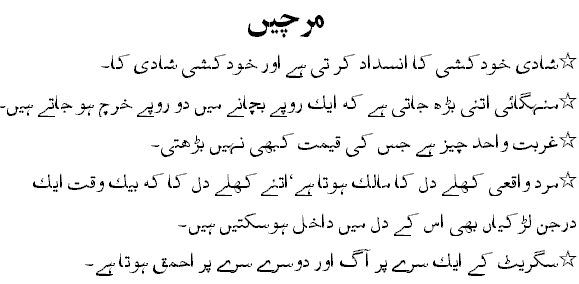 مرچیں
☆شادی خودکشی کا انسداد کرتی ہے اور خودکشی شادی کا۔
☆منہگائی اتنی بڑھ جاتی ہے کہ ایک روپے بچانے میں دو روپے خرچ ہو جاتے ہیں۔
☆غربت واحد چیز ہے جس کی قیمت کبھی نہیں بڑھتی۔
☆مرد واقعی کھلے دل کا مالک ہوتا ہے‘اتنے کھلے دل کا کہ بیک وقت ایک
درجن لڑکیاں بھی اس کے دل میں داخل ہوسکتیں ہیں۔
☆سگریٹ کے ایک سرے پر آگ اور دوسرے سرے پر احمق ہوتا ہے۔